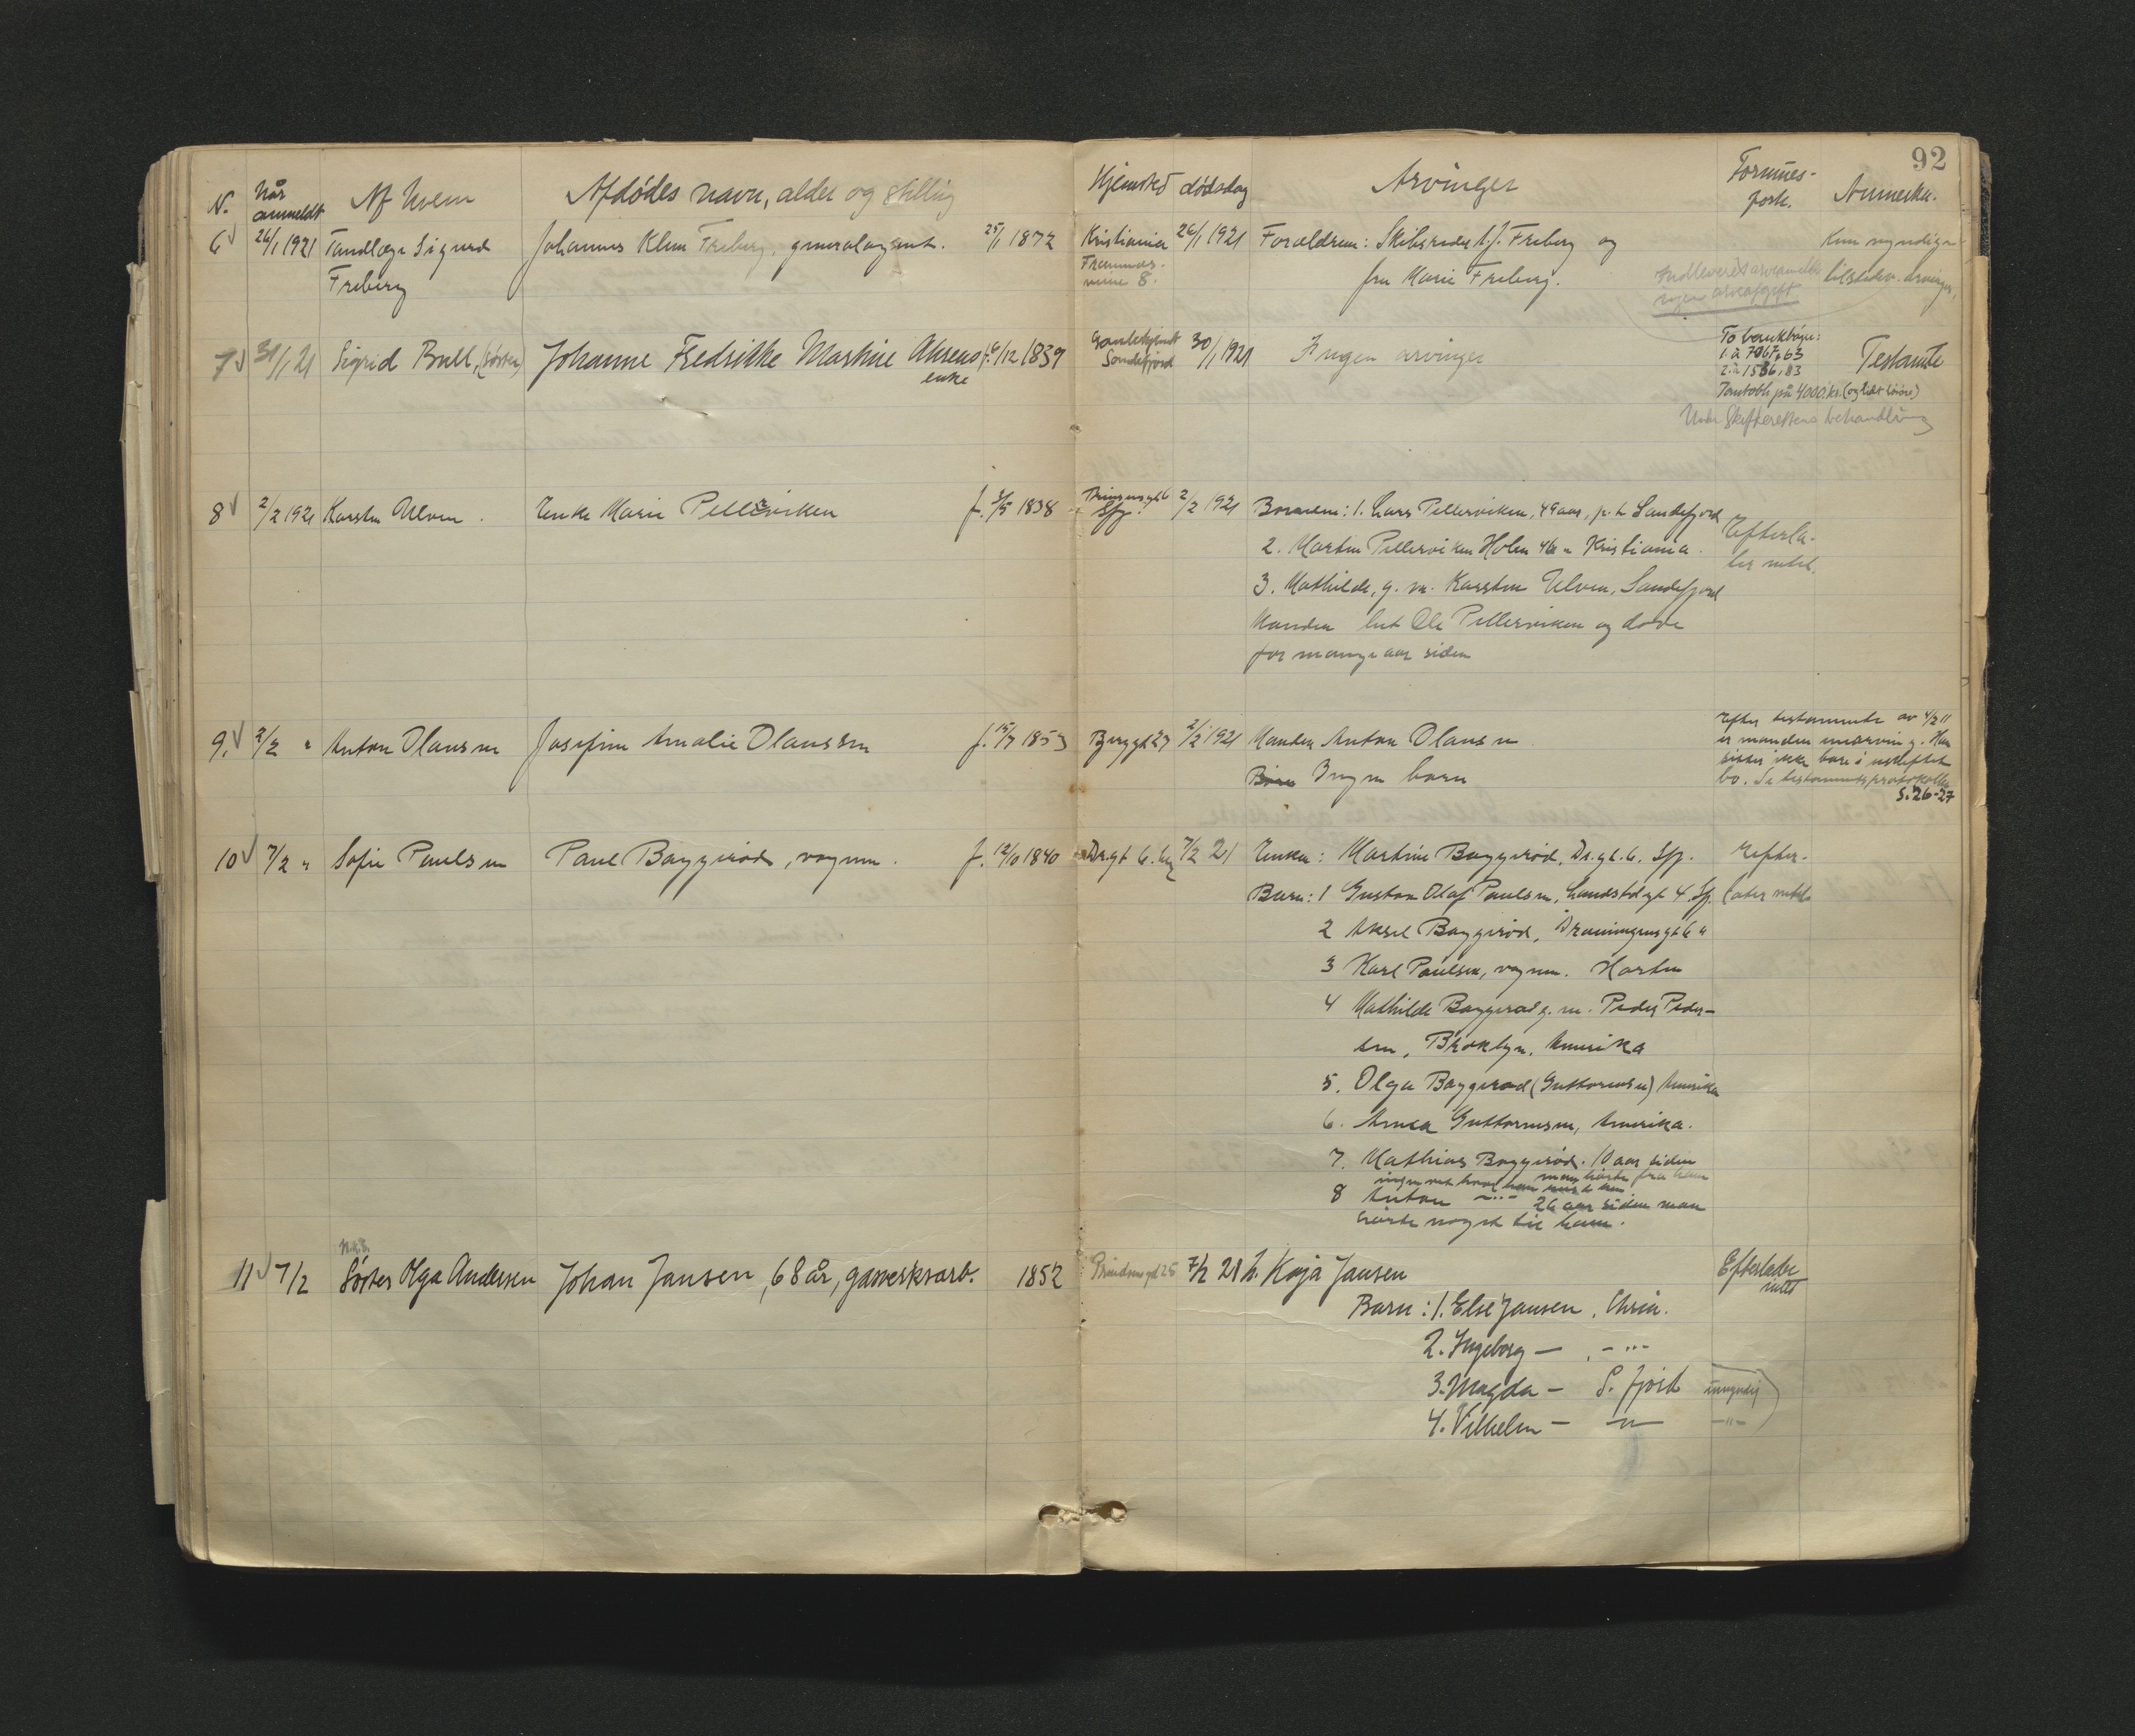 92
N. Når anmeldt Af hvem Afdødes navn, alder og stilling Hjemsted dødsdag Arvinger Formues- Anmerkn.
forh.
6 26/1 1921 Tandlæge Sigurd Johannes Klem Friberg, generalagent. 25/1 1872 Kristiania 26/1 1921 Forældrene: Skibsreder A.J. Friberg og Kun myndige
Friberg Frednes- fru Marie Friberg. tilstedev. arvinger,
veien 8.
Indleveret arveanmeldelse
ingen arveafgift
7 31/1 21 Sigrid Bull, (søster) Johanne Fredrikke Martine Ahrens f. 6/12 1839 Gamlehjemt 30/1 1921 Ingen arvinger To bankbøger: Testamente
enke Sandefjord 1. à 7067,63
2. à 1586,83
Pantobl. på 4000 kr. (og lidt løsøre)
Under Skifterettens behandling
8 2/2 1921 Karsten Ulven. Enke Marie Pellerviken f. 3/5 1838 Prinsensgt 6 2/2 1921 Barnene: 1. Lars Pellerviken, 49 aar, p.t. Sandefjord Efterla-
Sfj. 2. Martin Pellerviken Holm 46 " Kristiania. ter intet.
3. Mathilde, g. m. Karsten Ulven, Sandefjord
Manden het Ole Pellerviken og døde
for mange aar siden
9. 2/2 " Anton Olausen Josefine Amalie Olaussen f. 15/7 1853 Bjerggt 27 2/2 1921 Manden Anton Olausen Efter testamente av 4/2 11
er manden enearving. Han
Børn Ingen barn sitter ikke bare i uskiftet
bo. Se testamentsprotokollen
S. 26-27
10 7/2 " Sofie Paulsen Paul Baggerød, vognm. f. 12/10 1840 Dr.gt 6. 7/2 21 Enke: Martine Baggerød, Dr.gt. 6. Sfj. Efter-
Barn: 1 Gustav Olaf Paulsen, Landstadgt 4. Sfj. later intet
2 Aksel Baggerød, Dronningensgt 6 "
3 Karl Paulsen, vognm. Horten
4 Mathilde Baggerød g. m. Peder Peder-
sen, Broklyn, Amerika
5. Olga Baggerød (Guttormsen) Amerika
6. Anna Guttormsen, Amerika.
7. Mathias Baggerød. 10 aar siden
man hørte fra ham
ingen vet hvor
8 Anton —"— 26 aar siden man
hørte noget til ham.
11 7/2 Søster Olga Andersen Johan Jansen, 68 år, gasverksarb. 1852 Prindsensgt 25 7/2 21 h. Kaja Jansen Efterlader
intet
Barn: 1. Else Jansen, Chria.
2. Ingeborg — , —"—
3. Magda — S. fjord umyndig
4. Vilhelm — —"— —"—